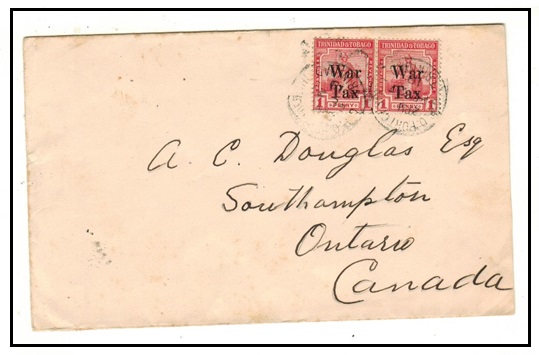 TRINIDAD & TOBAGO TRINIDAD & TOBAGO
War War
Tax Tax
1 PENNY 1 1 PENNY 1
A. C. Douglas Esq
Southampton
Ontario
Canada